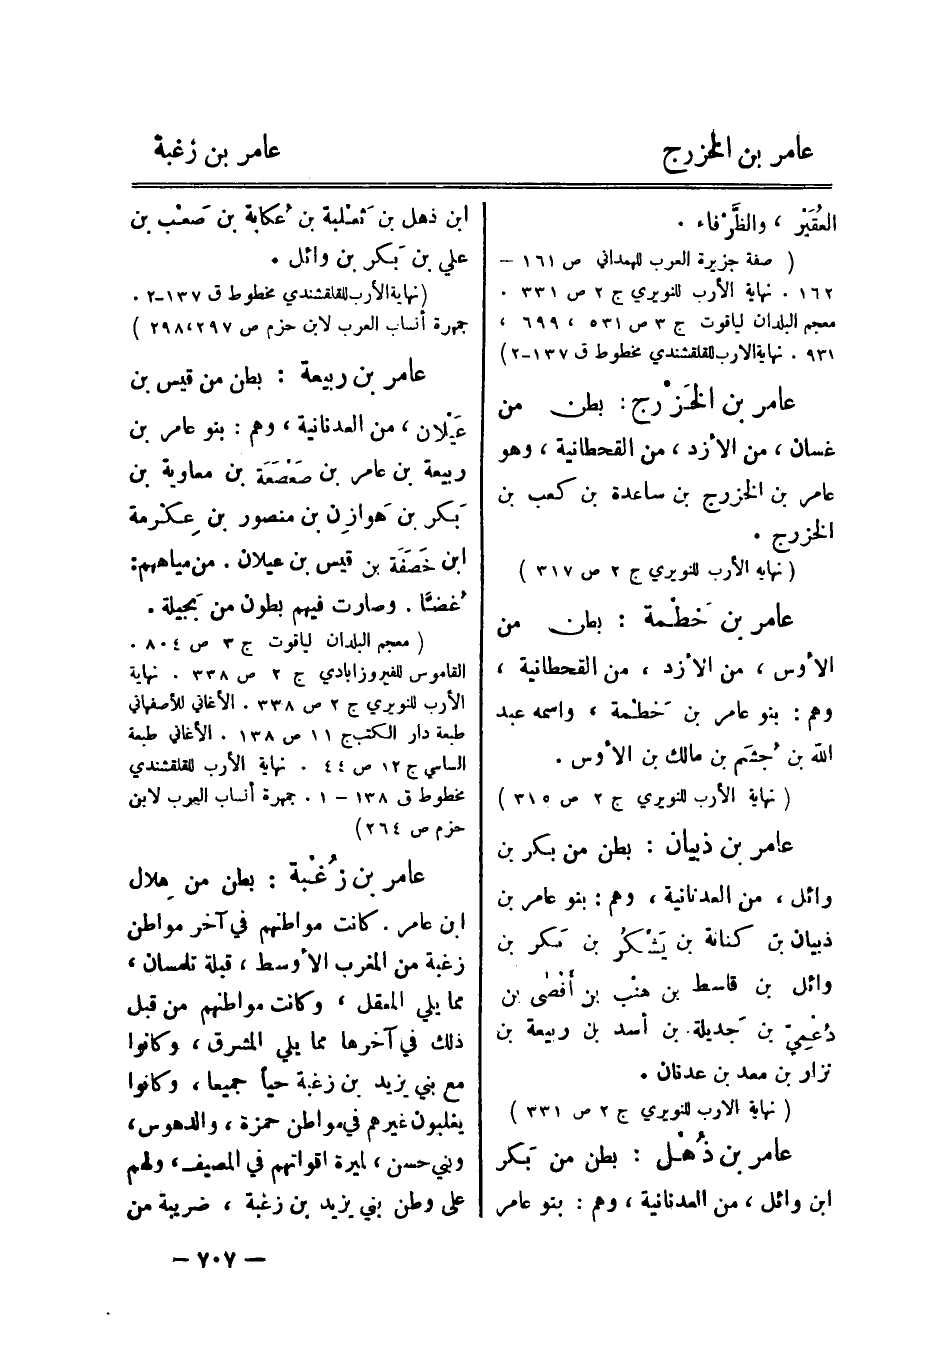 عامر بن الخزرج
عامر بن زغبة
العُقَيْر ، والظَّرْفاء .
( صفة جزيرة العرب للهمداني ص ١٦١ –
١٦٢ . نهاية الأرب للنويري ج ٢ ص ٣٣١ .
معجم البلدان لياقوت ج ٣ ص ٥٣١ ، ٦٩٩ ،
٩٣١ . نهاية الارب للقلقشندي مخطوط ق ١٣٧–٢)
عامر بن الخَزْرج : بطن من
غسان ، من الأزد ، من القحطانية ، وهو
عامر بن الخزرج بن ساعدة بن كعب بن
الخزرج .
( نهايه الأرب للنويري ج ٢ ص ٣١٧ )
عامر بن خَطْمة : بطن من
الأوس ، من الأزد ، من القحطانية ،
وهم : بنو عامر بن خَطْمة ، واسمه عبد
الله بن جُشَم بن مالك بن الأوس .
( نهاية الأرب للنويري ج ٢ ص ٣١٥ )
عامر بن ذبيان : بطن من بكر بن
وائل ، من العدنانية ، وهم : بنو عامر بن
ذبيان بن كنانة بن يَشْكُر بن بكر بن
وائل بن قاسط بن هنب بن أَفْصَى بن
دُعْمِيّ بن جَديلة بن أسد بن ربيعة بن
نزار بن معد بن عدنان .
( نهاية الارب للنويري ج ٢ ص ٣٣١ )
عامر بن ذُهْل : بطن من بَكر
ابن وائل ، من العدنانية ، وهم : بنو عامر
ابن ذهل بن ثَعْلبة بن عُكابة بن صَعْب بن
علي بن بَكر بن وائل .
(نهاية الأرب للقلقشندي مخطوط ق ١٣٧–٢ .
جمهرة أنساب العرب لابن حزم ص ٢٩٧،٢٩٨ )
عامر بن ربيعة : بطن من قيس بن
عَيْلان ، من العدنانية ، وهم : بنو عامر بن
ربيعة بن عامر بن صَعْصَعَة بن معاوية بن
بَكر بن هَوازِن بن منصور بن عِكرمة
ابن خَصَفَة بن قيس بن عيلان . من مياههم :
غُضَيًّا . وصارت فيهم بطون من بَجيلة .
( معجم البلدان لياقوت ج ٣ ص ٨٠٤ .
القاموس للفيروزابادي ج ٢ ص ٣٣٨ . نهاية
الأرب للنويري ج ٢ ص ٣٣٨ . الأغاني للأصفهاني
طبعة دار الكتب ج ١١ ص ١٣٨ . الأغاني طبعة
الساسي ج ١٢ ص ٤٤ . نهاية الأرب للقلقشندي
مخطوط ق ١٣٨ – ١ . جمهرة أنساب العرب لابن
حزم ص ٢٦٤)
عامر بن زُغْبة : بطن من هِلال
ابن عامر . كانت مواطنهم في آخر مواطن
زغبة من المغرب الأوسط ، قبلة تلمسان ،
مما يلي المعقل ، وكانت مواطنهم من قبل
ذلك في آخرها مما يلي المشرق ، وكانوا
مع بني يزيد بن زغبة حياً جميعا ، وكانوا
يغلبون غيرهم في مواطن حمزة ، والدهوس ،
وبني حسن ، لميرة اقواتهم في المصيف ، ولهم
على وطن بني يزيد بن زغبة ، ضريبة من
– ٧٠٧ –